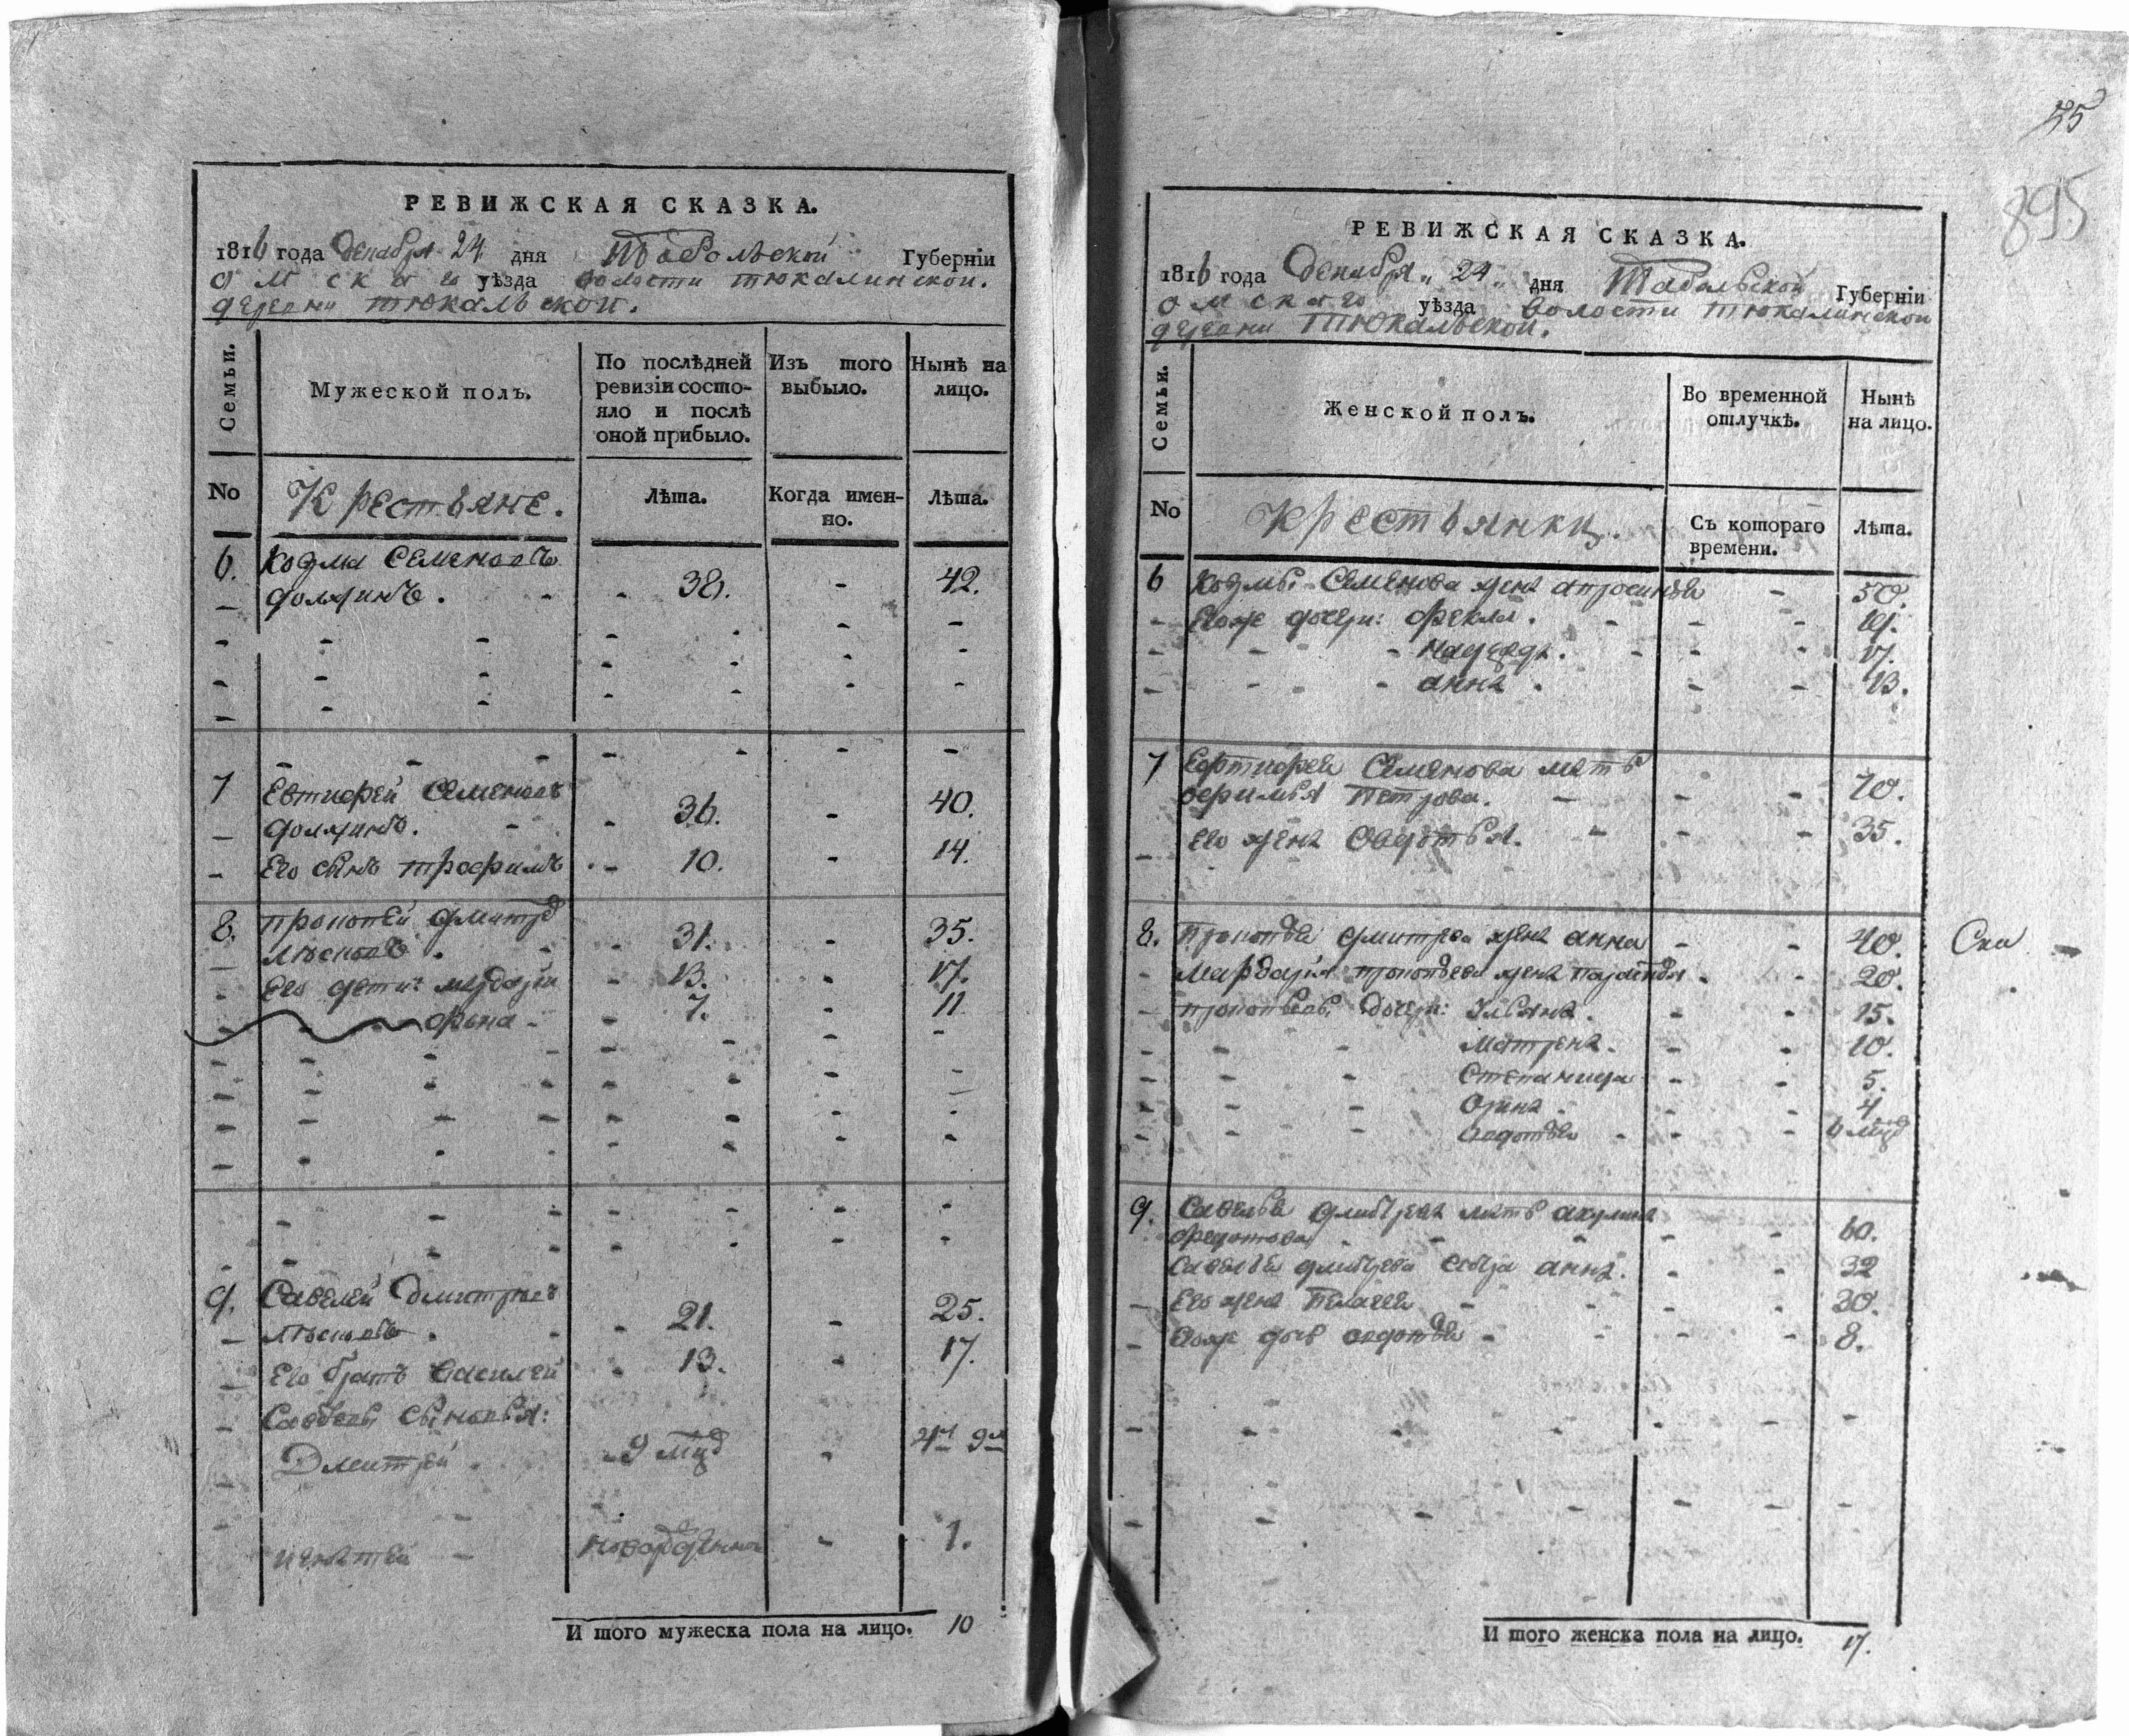 РЕВИЖСКАЯ СКАЗКА.
1816 года декабря 24 дня Тобольской Губерніи
Омскаго уѣзда волости тюкалинской.
деревни тюкальской.
Семьи.
Мужеской полъ.
По послѣдней ревизіи состояло и послѣ оной прибыло.
Изъ того выбыло.
Нынѣ на лицо.
No
Крестьяне.
Лѣта.
Когда именно.
Лѣта.
6. Козма Семеновъ
должинъ. - 38. - 42.
7 Евтифей Семеновъ
должинъ. 36. - 40.
Его сынъ трофимъ - 10. - 14.
8. прокопей дмитр
лѣсковъ. 31. - 35.
Его дети: мардари 13. - 17.
фома 7. - 11
9. Савелей Дмитрѣев
лѣсковъ. 21. - 25.
Его братъ василей 13. - 17.
Савѣевы сыновья:
Дмитрей 9 мцд - 4 9
игнатей - новорожденной - 1.
И того мужеска пола на лицо. 10
55
895
РЕВИЖСКАЯ СКАЗКА.
1816 года декабря 24 дня Тобольской Губерніи
Омскаго уѣзда волости тюкалинской
деревни тюкальской.
Семьи.
Женской полъ.
Во временной отлучкѣ.
Нынѣ на лицо.
No
Крестьянки.
Съ котораго времени.
Лѣта.
6 Козмы Семенова жена апросинья - 50.
Егоже дочери: фекла. - 19.
надежда. - 17.
анна. - 13.
7 Ефтифея Семенова мать
Петрова. - 70.
Его жена Овдотья. - 35.
8. Прокопья дмитрева жена анна - 40.
Мардарья прокопьева жена - 20.
прокопьевы дочери: Ульяна. - 15.
Матрена. - 10.
Степанида - 5.
Орина. - 4
авдотья - 6 мцд
9. Савелья дмитрева мать акулина
федотова - 60.
Савелья дмитрева сестра анна. - 32
Его жена Пелагея - 30.
Егоже дочь авдотья - 8.
И того женска пола на лицо. 17.